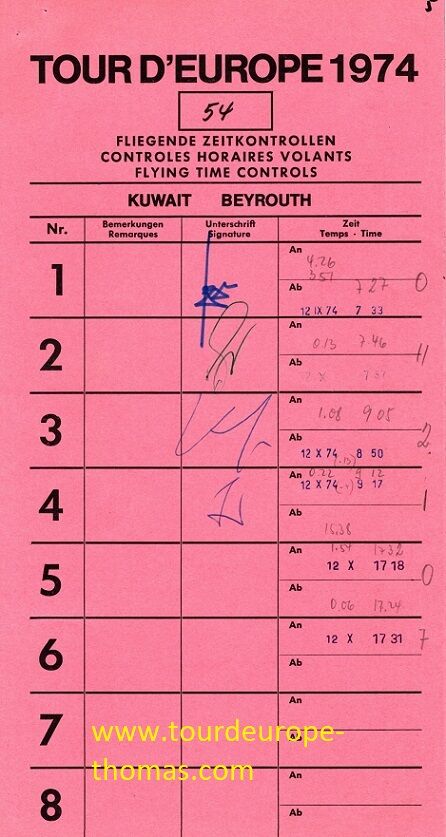 5
TOUR D'EUROPE 1974
54
FLIEGENDE ZEITKONTROLLEN
CONTROLES HORAIRES VOLANTS
FLYING TIME CONTROLS
KUWAIT BEYROUTH
Nr. Bemerkungen Unterschrift Zeit
Remarques Signature Temps · Time
1 An 4.26
351
Ab 7 27 0
12 IX 74 7 33
2 An 0.13 7 46
Ab 11
3 An 1.08 9 05
Ab 2
12 X 74 8 50
4 An 0.22 9 12
12 X 74 9 17 1
Ab
15.38
5 An 1.54 17 32
12 X 17 18 0
Ab
0.06 17.24
6 An 12 X 17 31 7
Ab
7 An
Ab
www.tourdeurope-
thomas.com
8 An
Ab